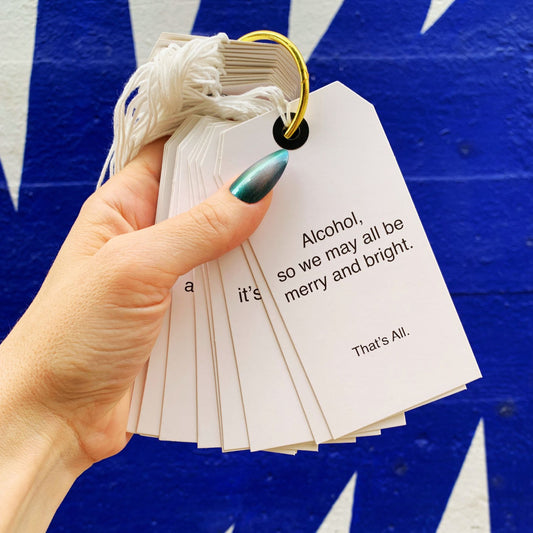 Alcohol,
so we may all be
merry and bright.
That's All.
a
it's